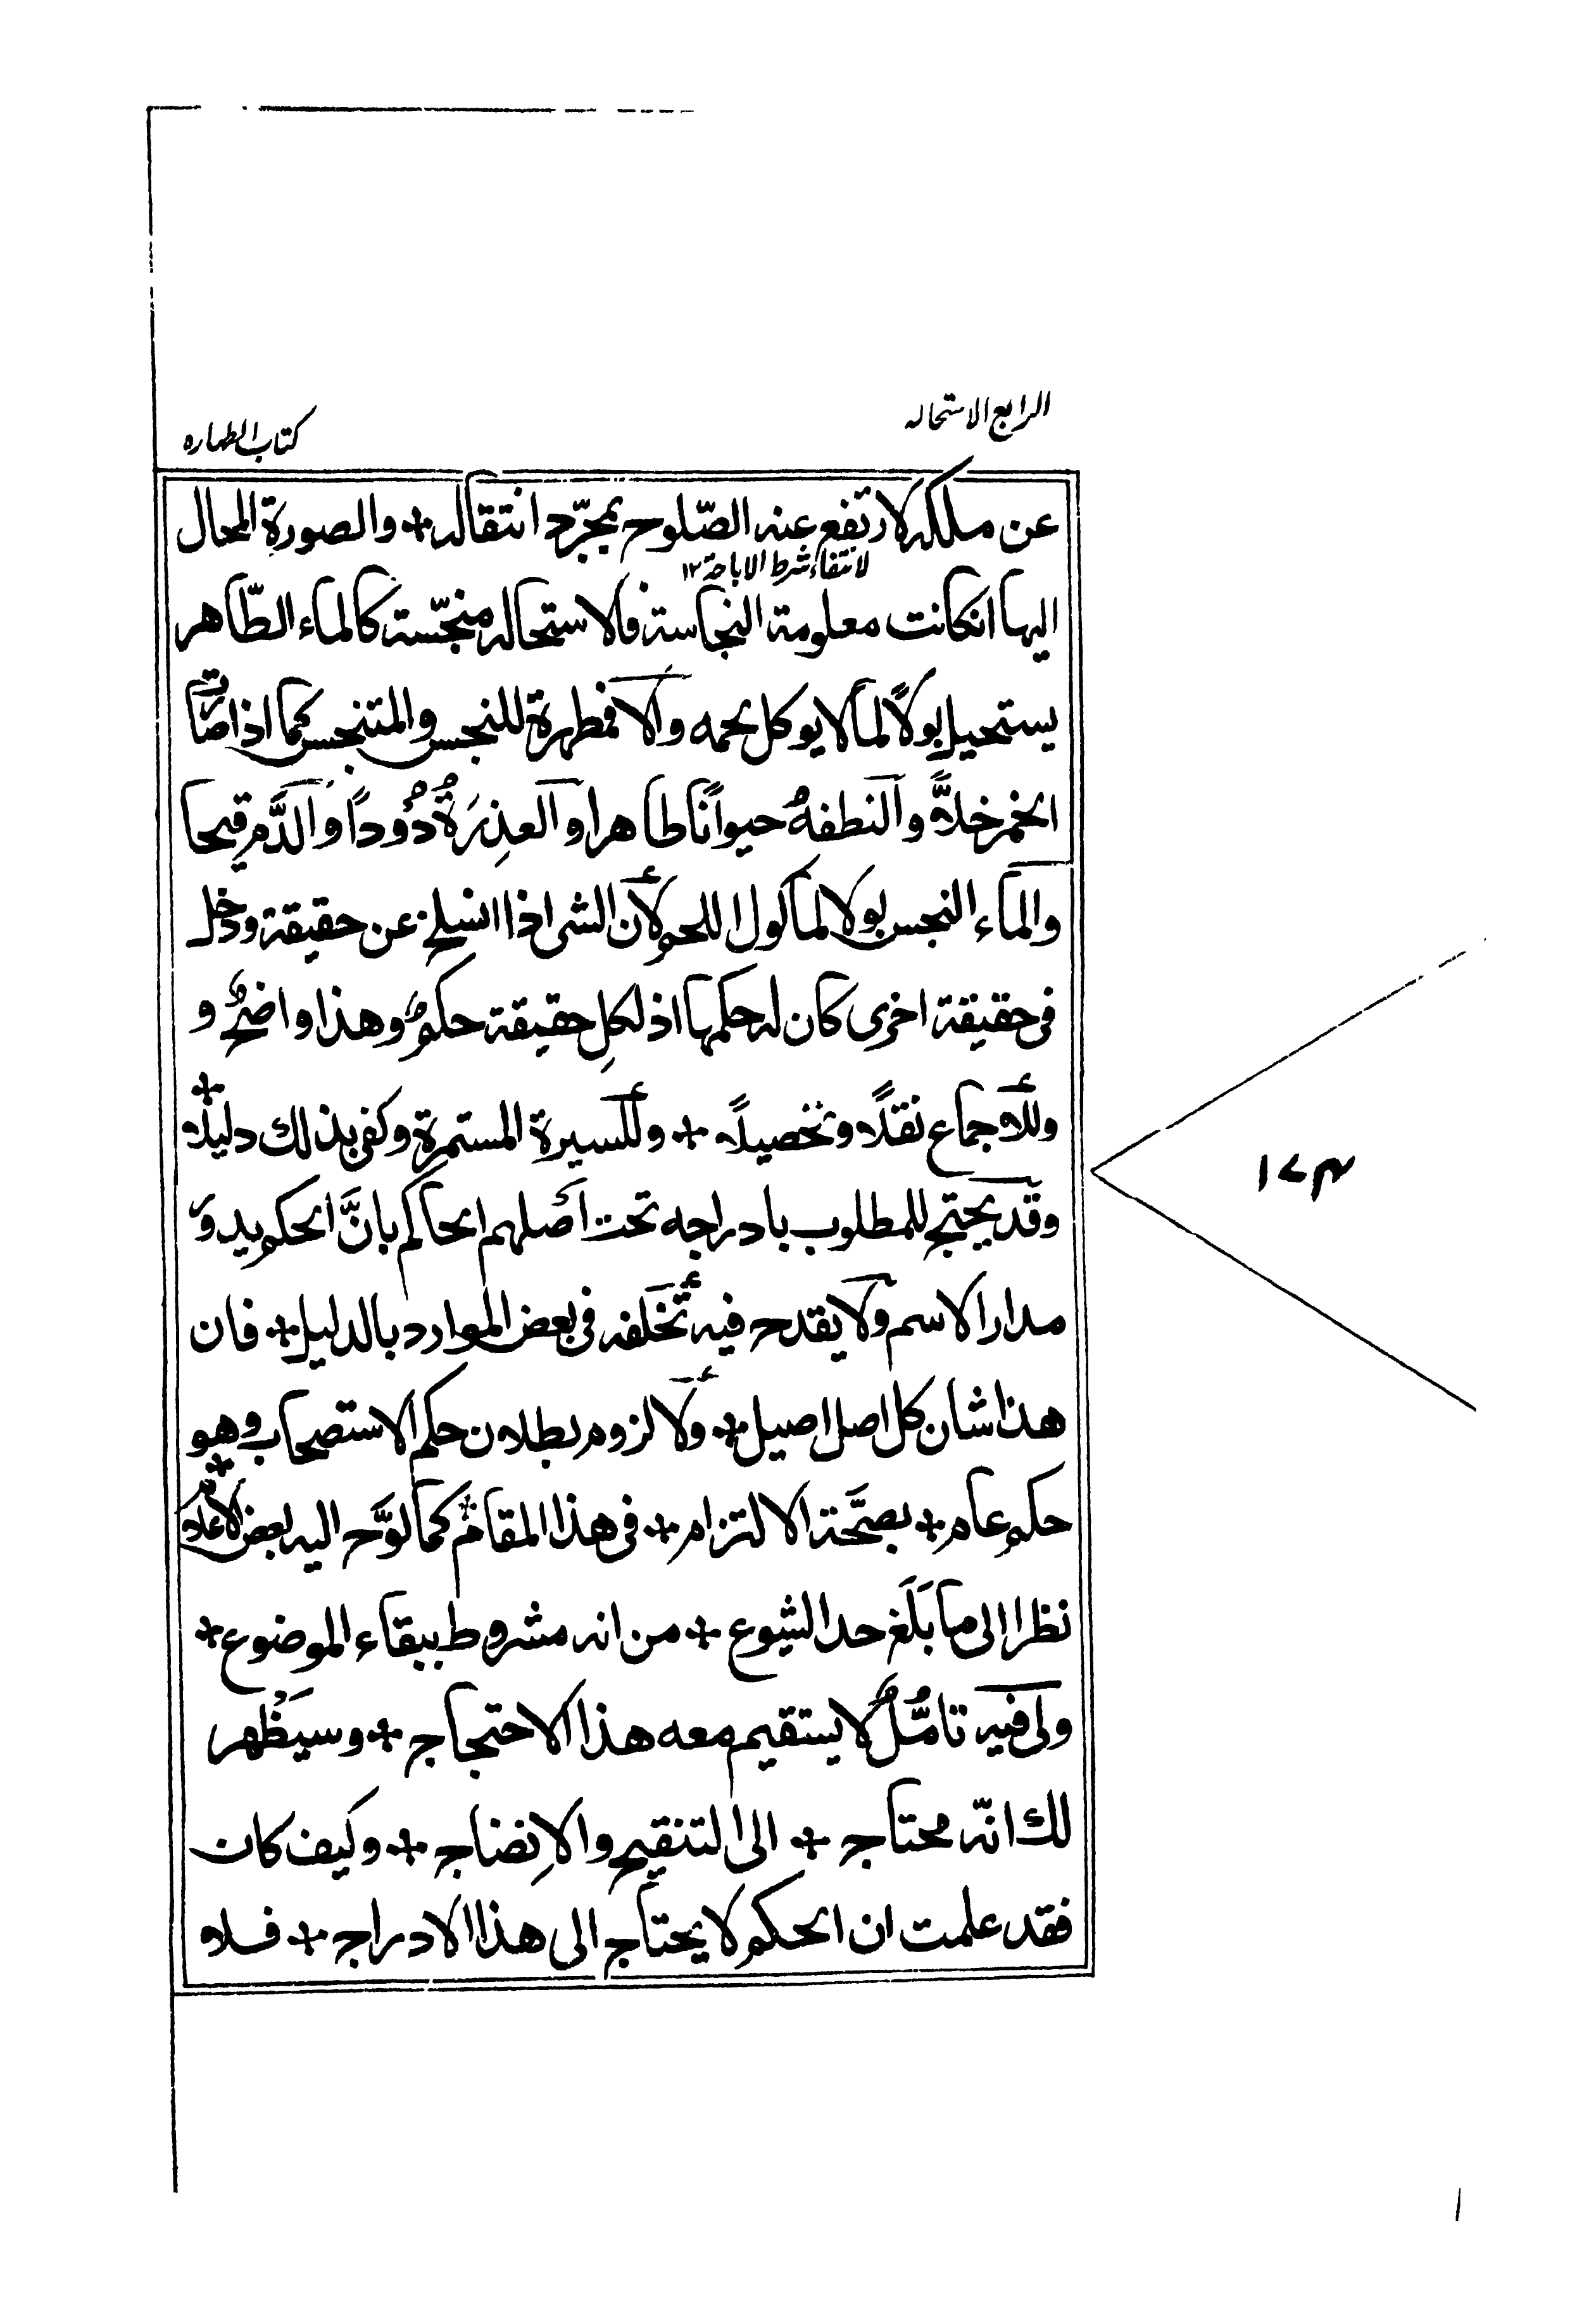 الرابع الاستحاله
كتاب الطهاره
عن ملكه لارتفع عنه الصّلوح بمجرّد انتقاله + والصورة المحال
لانتفاء شرط الاباحة ١٢
اليها انكانت معلومة النجاسة فالاستحاله منجّسة كالماء الطّاهر
يستحيل بولًا لما لا يوكل لحمه والا فمطهرة للنجس والمتنجس كما اذا صارت
الخمر خلاًّ والنطفهُ حيوانًا طاهرا والعذِرَةُ دُوُداً والدَّم قيحا
والماء النجس بولا لماكول اللحم لأن الشى اذا انسلخ عن حقيقة ودخل
فى حقيقة اخرى كان له حكمها اذ لكلِ حقيقة حكمٌ وهذا واضحٌ و
وللأجماع نقلًا وتحصيلًا + وللسيرة المستمرة وكفى بذلك دليلًا +
وقد يحتج للمطلوب بادراجه تحت اَصلهم الحاكم بانَّ الحكم يدوَر
مدار الاسم ولا يقدح فيه تُخلفه فى بعض الموارد بالدليل + فان
هذا شان كل اصل اصيل + ولا لزوم بطلان حكم الاستصحاب وهو
حكم عام + بصحَّة الالتزام + فى هذا المقام + كما لوَّح اليه بعض الاعلام +
نظرا الى ما بَلَغ حد الشيوع + من انه مشروط ببقاء الموضوع +
ولى فيه تامُّلٌ لا يستقيم معه هذا الاحتجاج + وسيَظُهر
لك انّه محتاج + الى التنقيح والاِنضاج + وكيف كان
فقد علمت ان الحكم لا يحتاج الى هذا الادراج + فلا
١٧٣